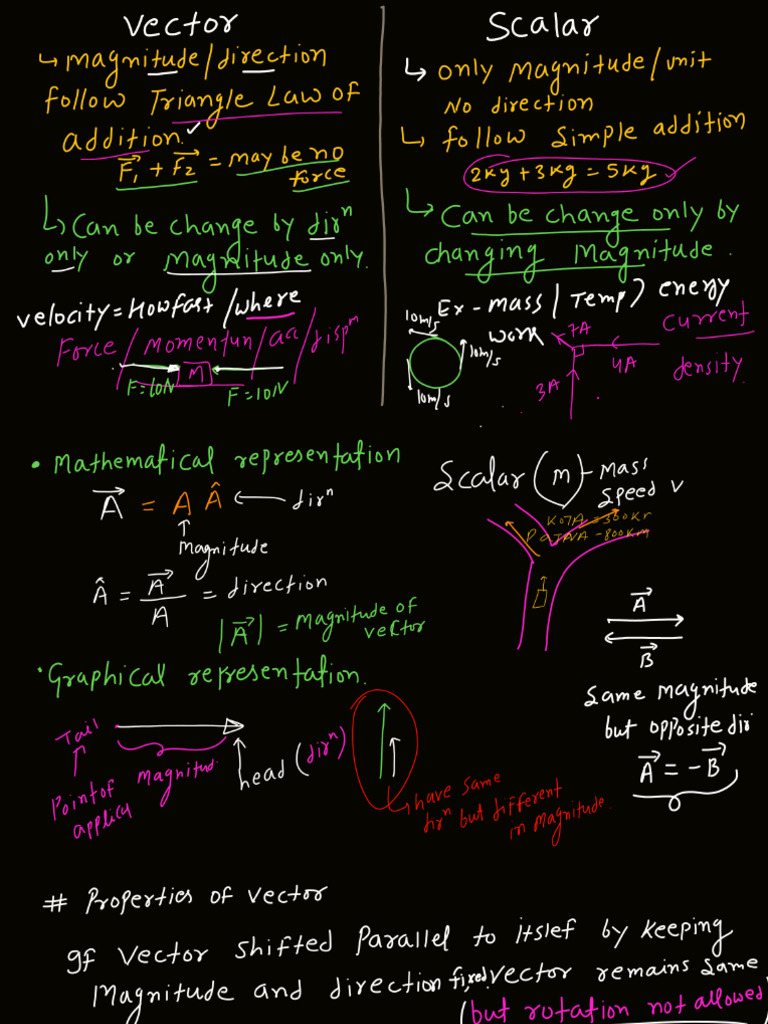 Vector
↳ magnitude/direction
follow Triangle Law of
addition ✓
F₁ + F₂ = may be no
force
↳ Can be change by dirⁿ
only or Magnitude only.
velocity = How fast / where
Force / Momentun / acc / dispⁿ
M
F=10N
F=10N
Scalar
↳ only Magnitude/unit
No direction
↳ follow Simple addition
2kg + 3kg = 5kg
↳ Can be change only by
changing Magnitude.
Ex - mass / Temp / energy
work
Current
density
10m/s
10m/s
10m/s
7A
4A
3A
• Mathematical representation
A = A Â ← dirⁿ
↑
Magnitude
Â = A/A = direction
|A| = Magnitude of
vector
Scalar (m) - Mass
Speed v
KOTA = 300Km
PATNA - 800Km
A
B
Same magnitude
but opposite dir
A = -B
• Graphical representation.
Tail
Point of
applicⁿ
Magnitud
head (dirⁿ)
↳ have same
dirⁿ but different
in Magnitude.
# Properties of Vector
If Vector Shifted Parallel to itslef by keeping
Magnitude and direction fixed. Vector remains Same
(but rotation not allowed)